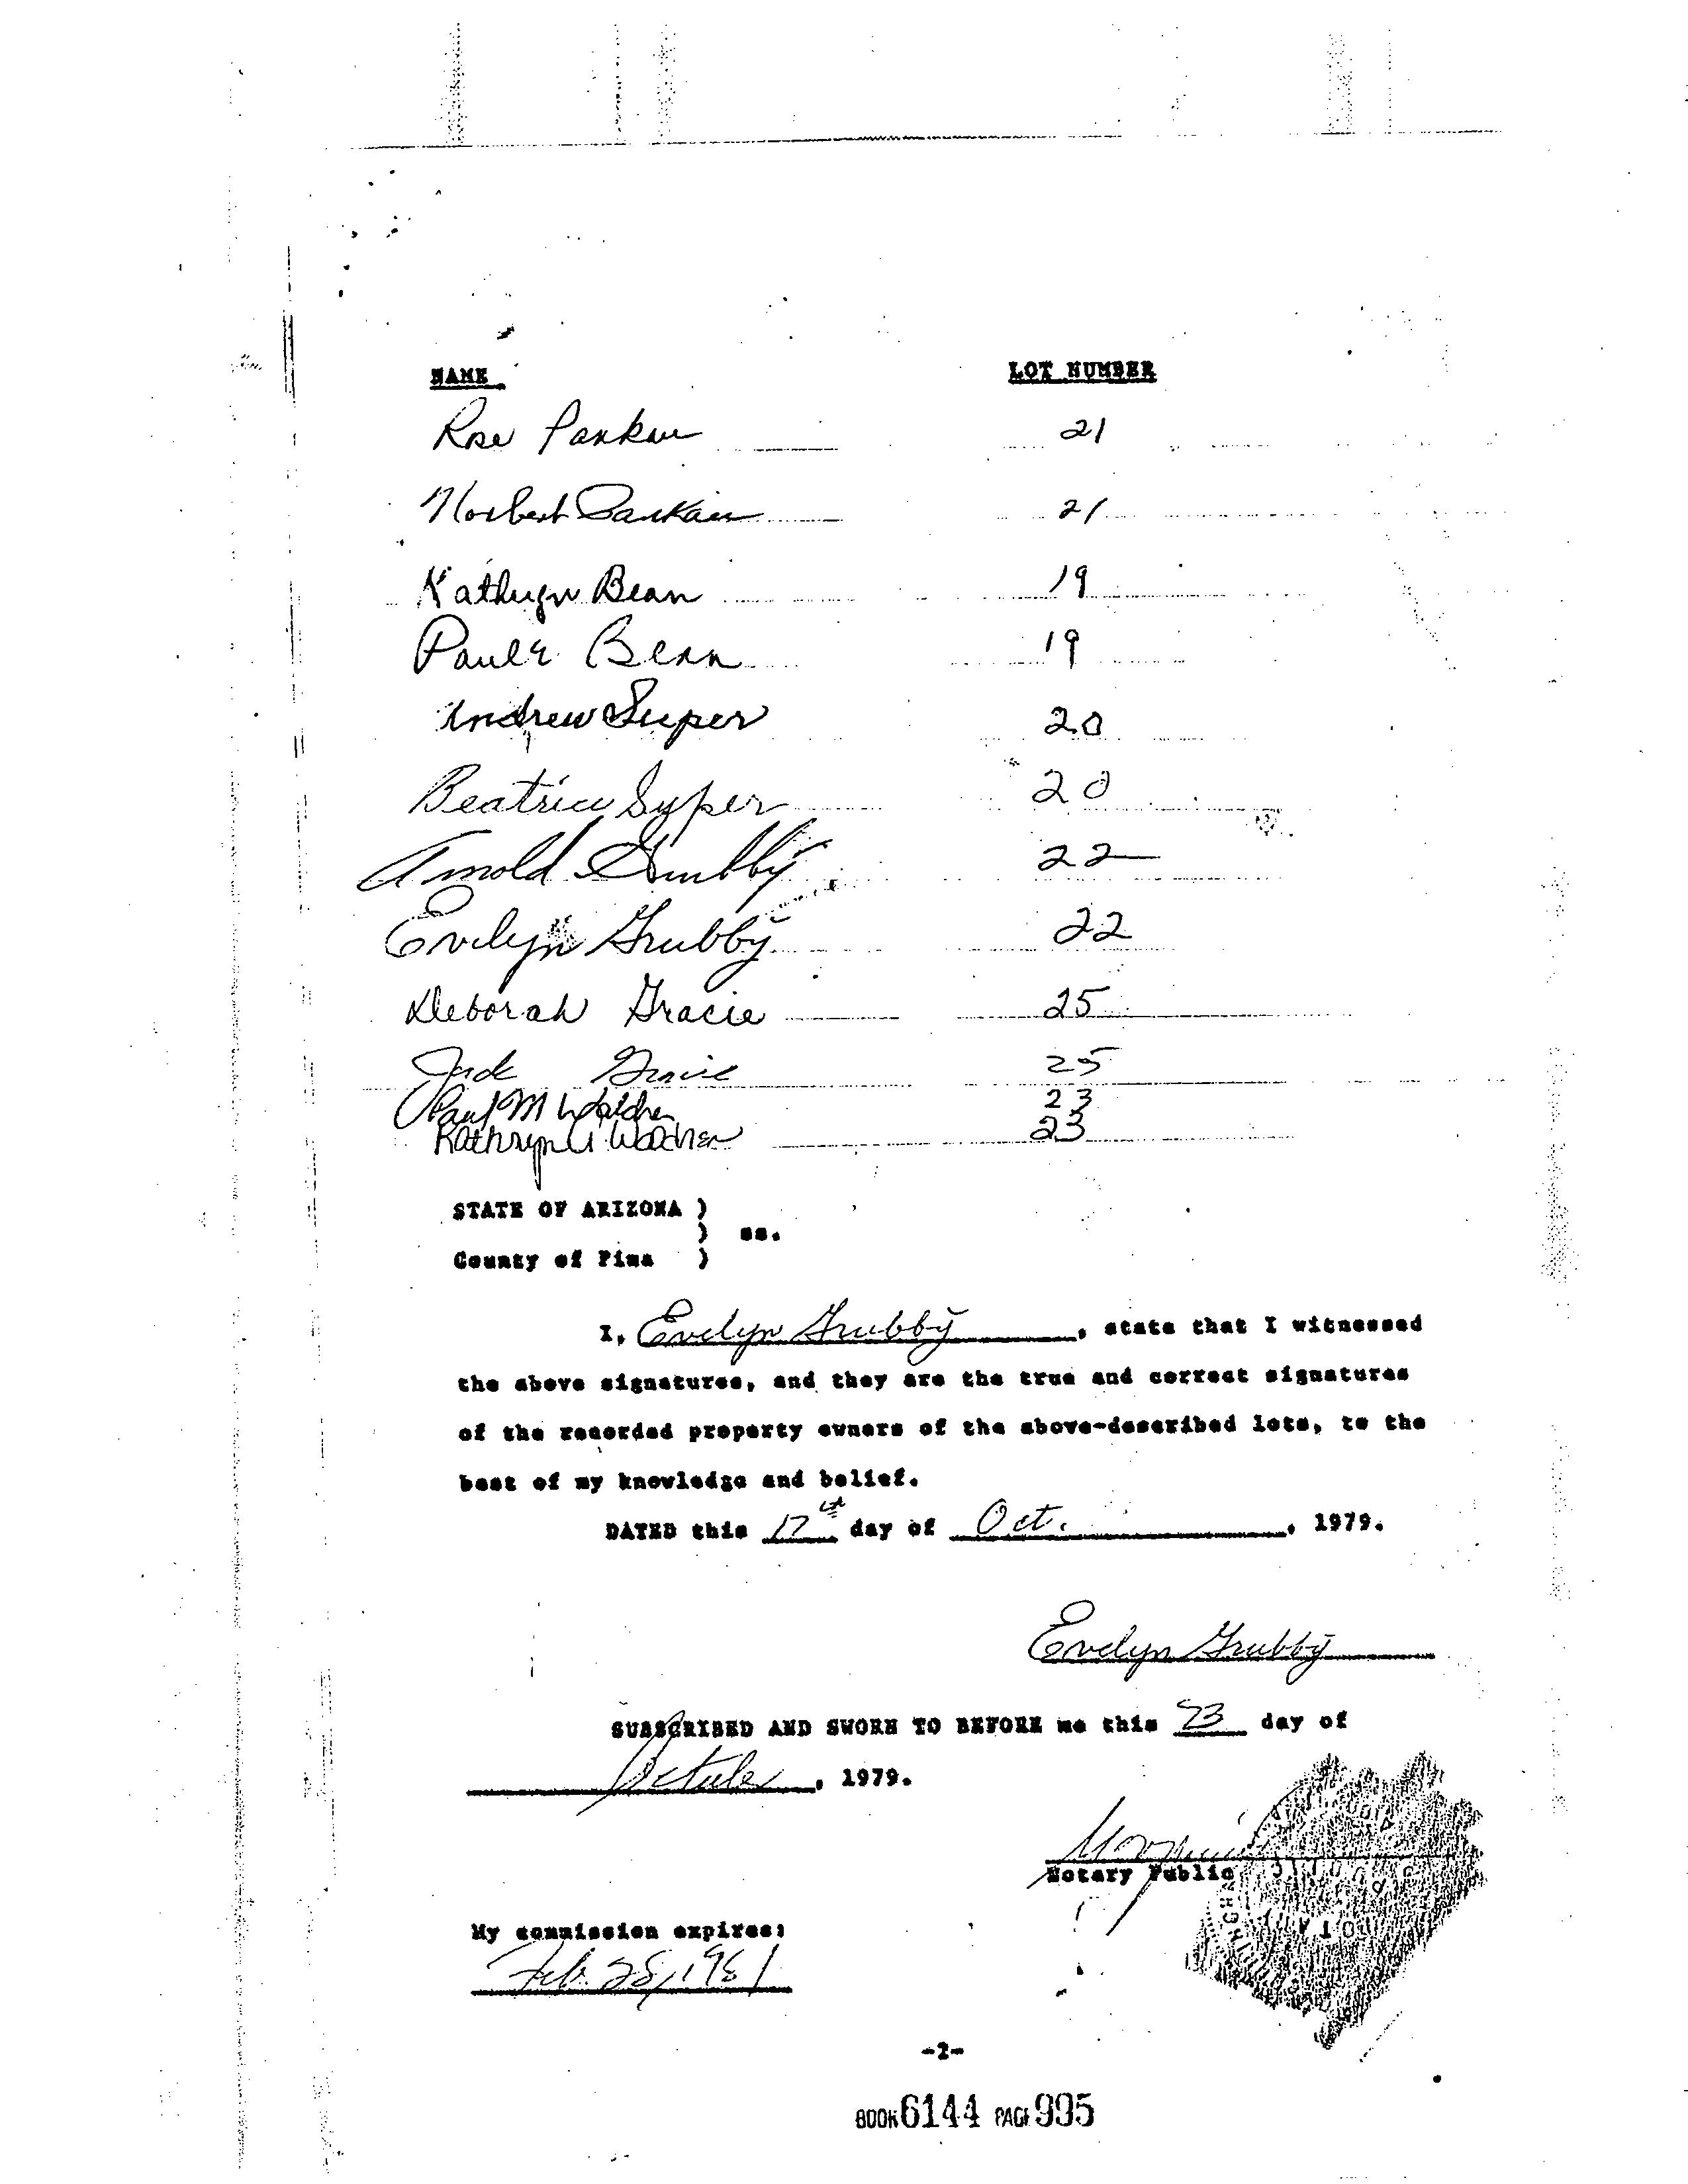 NAME LOT NUMBER
Rose Pankau 21
Norbert Pankau 21
Kathryn Bean 19
Paul E Bean 19
Andrew Super 20
Beatrice Super 20
Arnold Grubby 22
Evelyn Grubby 22
Deborah Gracie 25
Gracie 25
Paul M 23
Kathryn 23
STATE OF ARIZONA )
) ss.
County of Pima )
I, Evelyn Grubby, state that I witnessed
the above signatures, and they are the true and correct signatures
of the recorded property owners of the above-described lots, to the
best of my knowledge and belief.
DATED this 17th day of Oct., 1979.
Evelyn Grubby
SUBSCRIBED AND SWORN TO BEFORE me this 23 day of
October, 1979.
Notary Public
My commission expires:
Feb. 28, 1981
-2-
BOOK 6144 PAGE 995